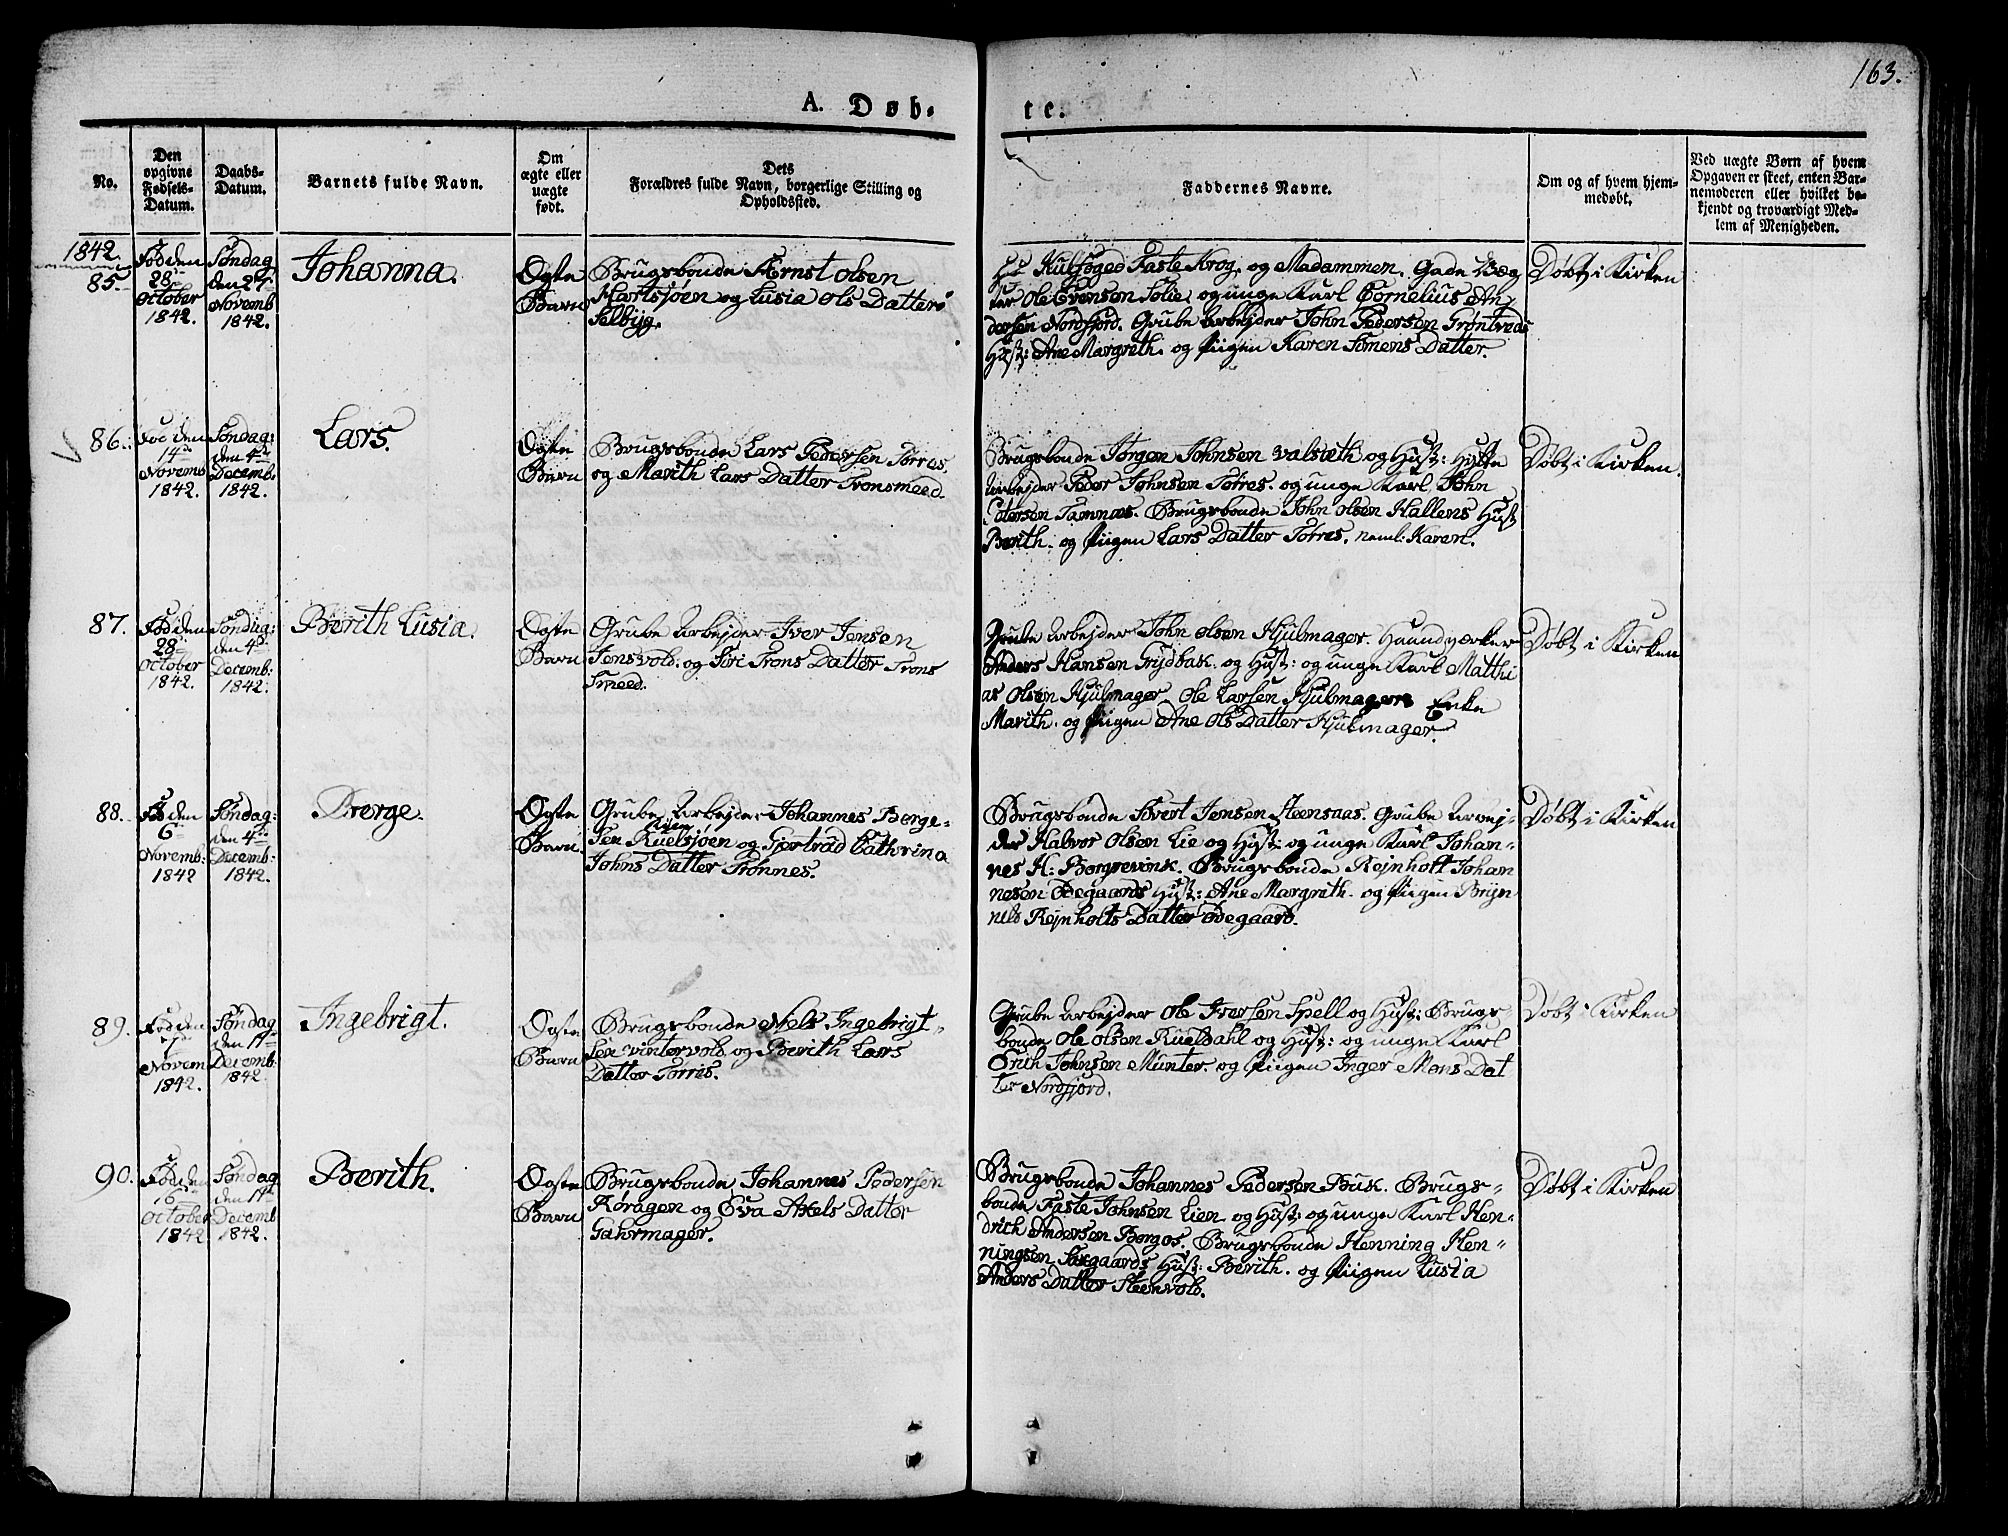 163.
A. Døb-
te.
No.
Den
opgivne
Fødsels-
Datum.
Daabs-
Datum.
Barnets fulde Navn.
Om
ægte eller
uægte
født.
Dets
Forældres fulde Navn, borgerlige Stilling og
Opholdssted.
Faddernes Navne.
Om og af hvem hjem-
medøbt.
Ved uægte Børn af hvem
Opgaven er skeet, enten Bar-
nemoderen eller hvilket be-
kjendt og troværdigt Med-
lem af Menigheden.
1842.
85.
Fød den
28de
October
1842.
Søndag
den 27de
Novemb
1842.
Johanna.
Ægte
Barn
Brugsbonde Ernst Olsen
Hartsjøen og Lusia Ols Datter
Selbyg.
Kulfoged Faste Krog, og Madammen. Gade Væg
ter Ole Evensen Solie, og unge Karl Cornelius An
dersen Nordfjord. Grube Arbejder John Pedersen Grøntveds
Hust: Ane Margreth. og Piigen Karen Simens Datter.
Døbt i Kirken
86.
Fød den
14de
Novemb
1842.
Søndag:
den 4de
Decemb:
1842.
Lars.
Ægte
Barn
Brugsbonde Lars Pedersen Torres
og Marith Lars Datter Tronsmeed.
Brugsbonde Jørgen Johnsen Valsæth og Hust: Hytte
Arbejder Peder Johnsen Torres. og unge Karl John
Petersen Tamnæs. Brugsbonde John Olsen Hallens Hust
Berith. og Piigen Lars Datter Torres. neml: Karen.
Døbt i Kirken.
87.
Fød den
28de
October
1842.
Søndag:
den 4de
Decemb:
1842.
Berith Lusia.
Ægte
Barn
Grube Arbejder Iver Jensen
Jensvold. og Siri Trons Datter Trons
Smeed.
Grube Arbejder John Olsen Hjulmager. Haandværker
Anders Hansen Grydbak. og Hust: og unge Karl Matthi
as Olsen Hjulmager. Ole Larsen Hjulmagers Enke
Marith. og Piigen Ane Ols Datter Hjulmager.
Døbt i Kirken
88.
Fød den
6te
Novemb:
1842
Søndag:
den 4de
Decemb:
1842.
Børge.
Ægte
Barn.
Grube Arbejder Johannes Børge-
sen Ruelsjøen og Gjertrud Cathrina
Johns Datter Trønnes.
Brugsbonde Sivert Jensen Steensaas. Grube Arbej
der Halvor Olsen Lie og Hust: og unge Karl Johan-
nes H: Borgrevink. Brugsbonde Rejnholt Johan
nesen Ødegaards Hust: Ane Margreth. og Piigen Bryn
nels Rejnholts Datter Ødegaard.
Døbt i Kirken
89.
Fød den
Novem
1842.
Søndag
den 11te
Decemb:
1842.
Ingebrigt.
Ægte
Barn
Brugsbonde Niels Ingebrigt-
sen Vintervold. og Berith Lars
Datter Torris.
Grube Arbejder Ole Iversen Spell og Hust: Brugs
bonde Ole Olsen Rueldahl og Hust: og unge Karl
Erich Johnsen Munter. og Piigen Inger Mons Dat
ter Nordfjord.
Døbt i Kirken
90.
Fød den
16de
October
1842
Søndag
den 11te
Decemb
1842.
Berith.
Ægte
Barn
Brugsbonde Johannes Pedersen
Koragen og Eva Axels Datter
Gahrmager.
Brugsbonde Johannes Pedersen Buk. Brugs-
bonde Faste Johnsen Lien og Hust: og unge Karl Hen-
drich Andersen Borgos. Brugsbonde Henning Hen-
ningsen Skogaards Hust: Berith. og Piigen Lusia
Anders Datter Steenvold.
Døbt i Kirken